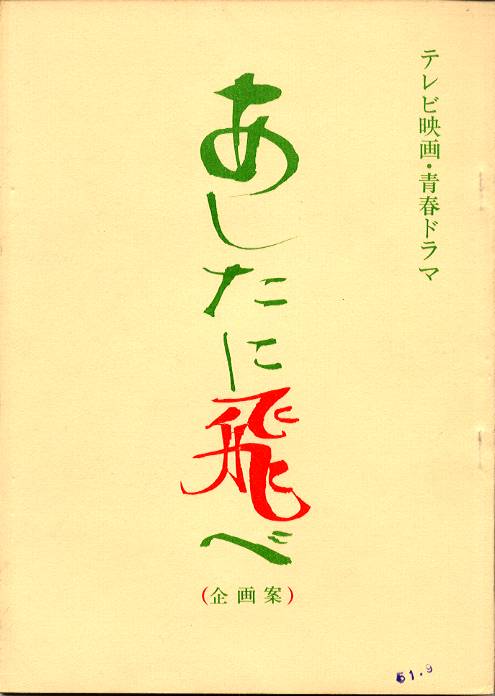 テレビ映画・青春ドラマ
あしたに飛べ
(企画案)
51.9